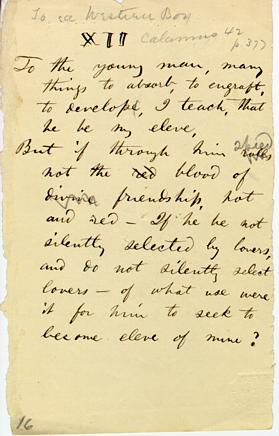 To a Western Boy
XII Calamus 42
p. 377
To the young man, many
things to absorb, to engraft,
to develope, I teach, that
he be my eleve,
But if through him speed
not the red blood of
divine friendship, hot
and red — If he be not
silently selected by lovers,
and do not silently select
lovers — of what use were
it for him to seek to
become eleve of mine?
16